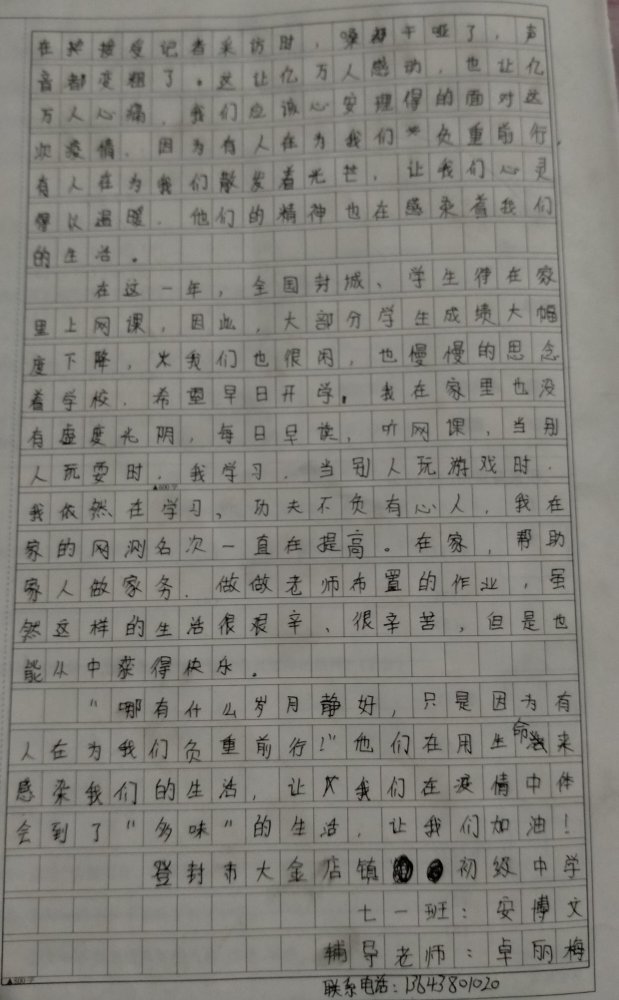 在接受记者采访时，嗓都干哑了，声
音都变粗了。这让亿万人感动，也让亿
万人心痛，我们应该心安理得的面对这
次疫情，因为有人在为我们负重前行，
有人在为我们散发着光芒，让我们心灵
得以温暖，他们的精神也在感染着我们
的生活。
在这一年，全国封城、学生待在家
里上网课，因此，大部分学生成绩大幅
度下降，我们也很闲，也慢慢的思念
着学校，希望早日开学。我在家里也没
有虚度光阴，每日早读，听网课，当别
人玩耍时，我学习，当别人玩游戏时，
▲600字
我依然在学习、功夫不负有心人，我在
家的网测名次一直在提高。在家，帮助
家人做家务，做做老师布置的作业，虽
然这样的生活很艰辛、很辛苦，但是也
能从中获得快乐。
“哪有什么岁月静好，只是因为有
人在为我们负重前行！”他们在用生命来
感染我们的生活，让我们在疫情中体
会到了“多味”的生活，让我们加油！
登封市大金店镇初级中学
七一班：安博文
辅导老师：卓丽梅
▲800字
联系电话：13643801020